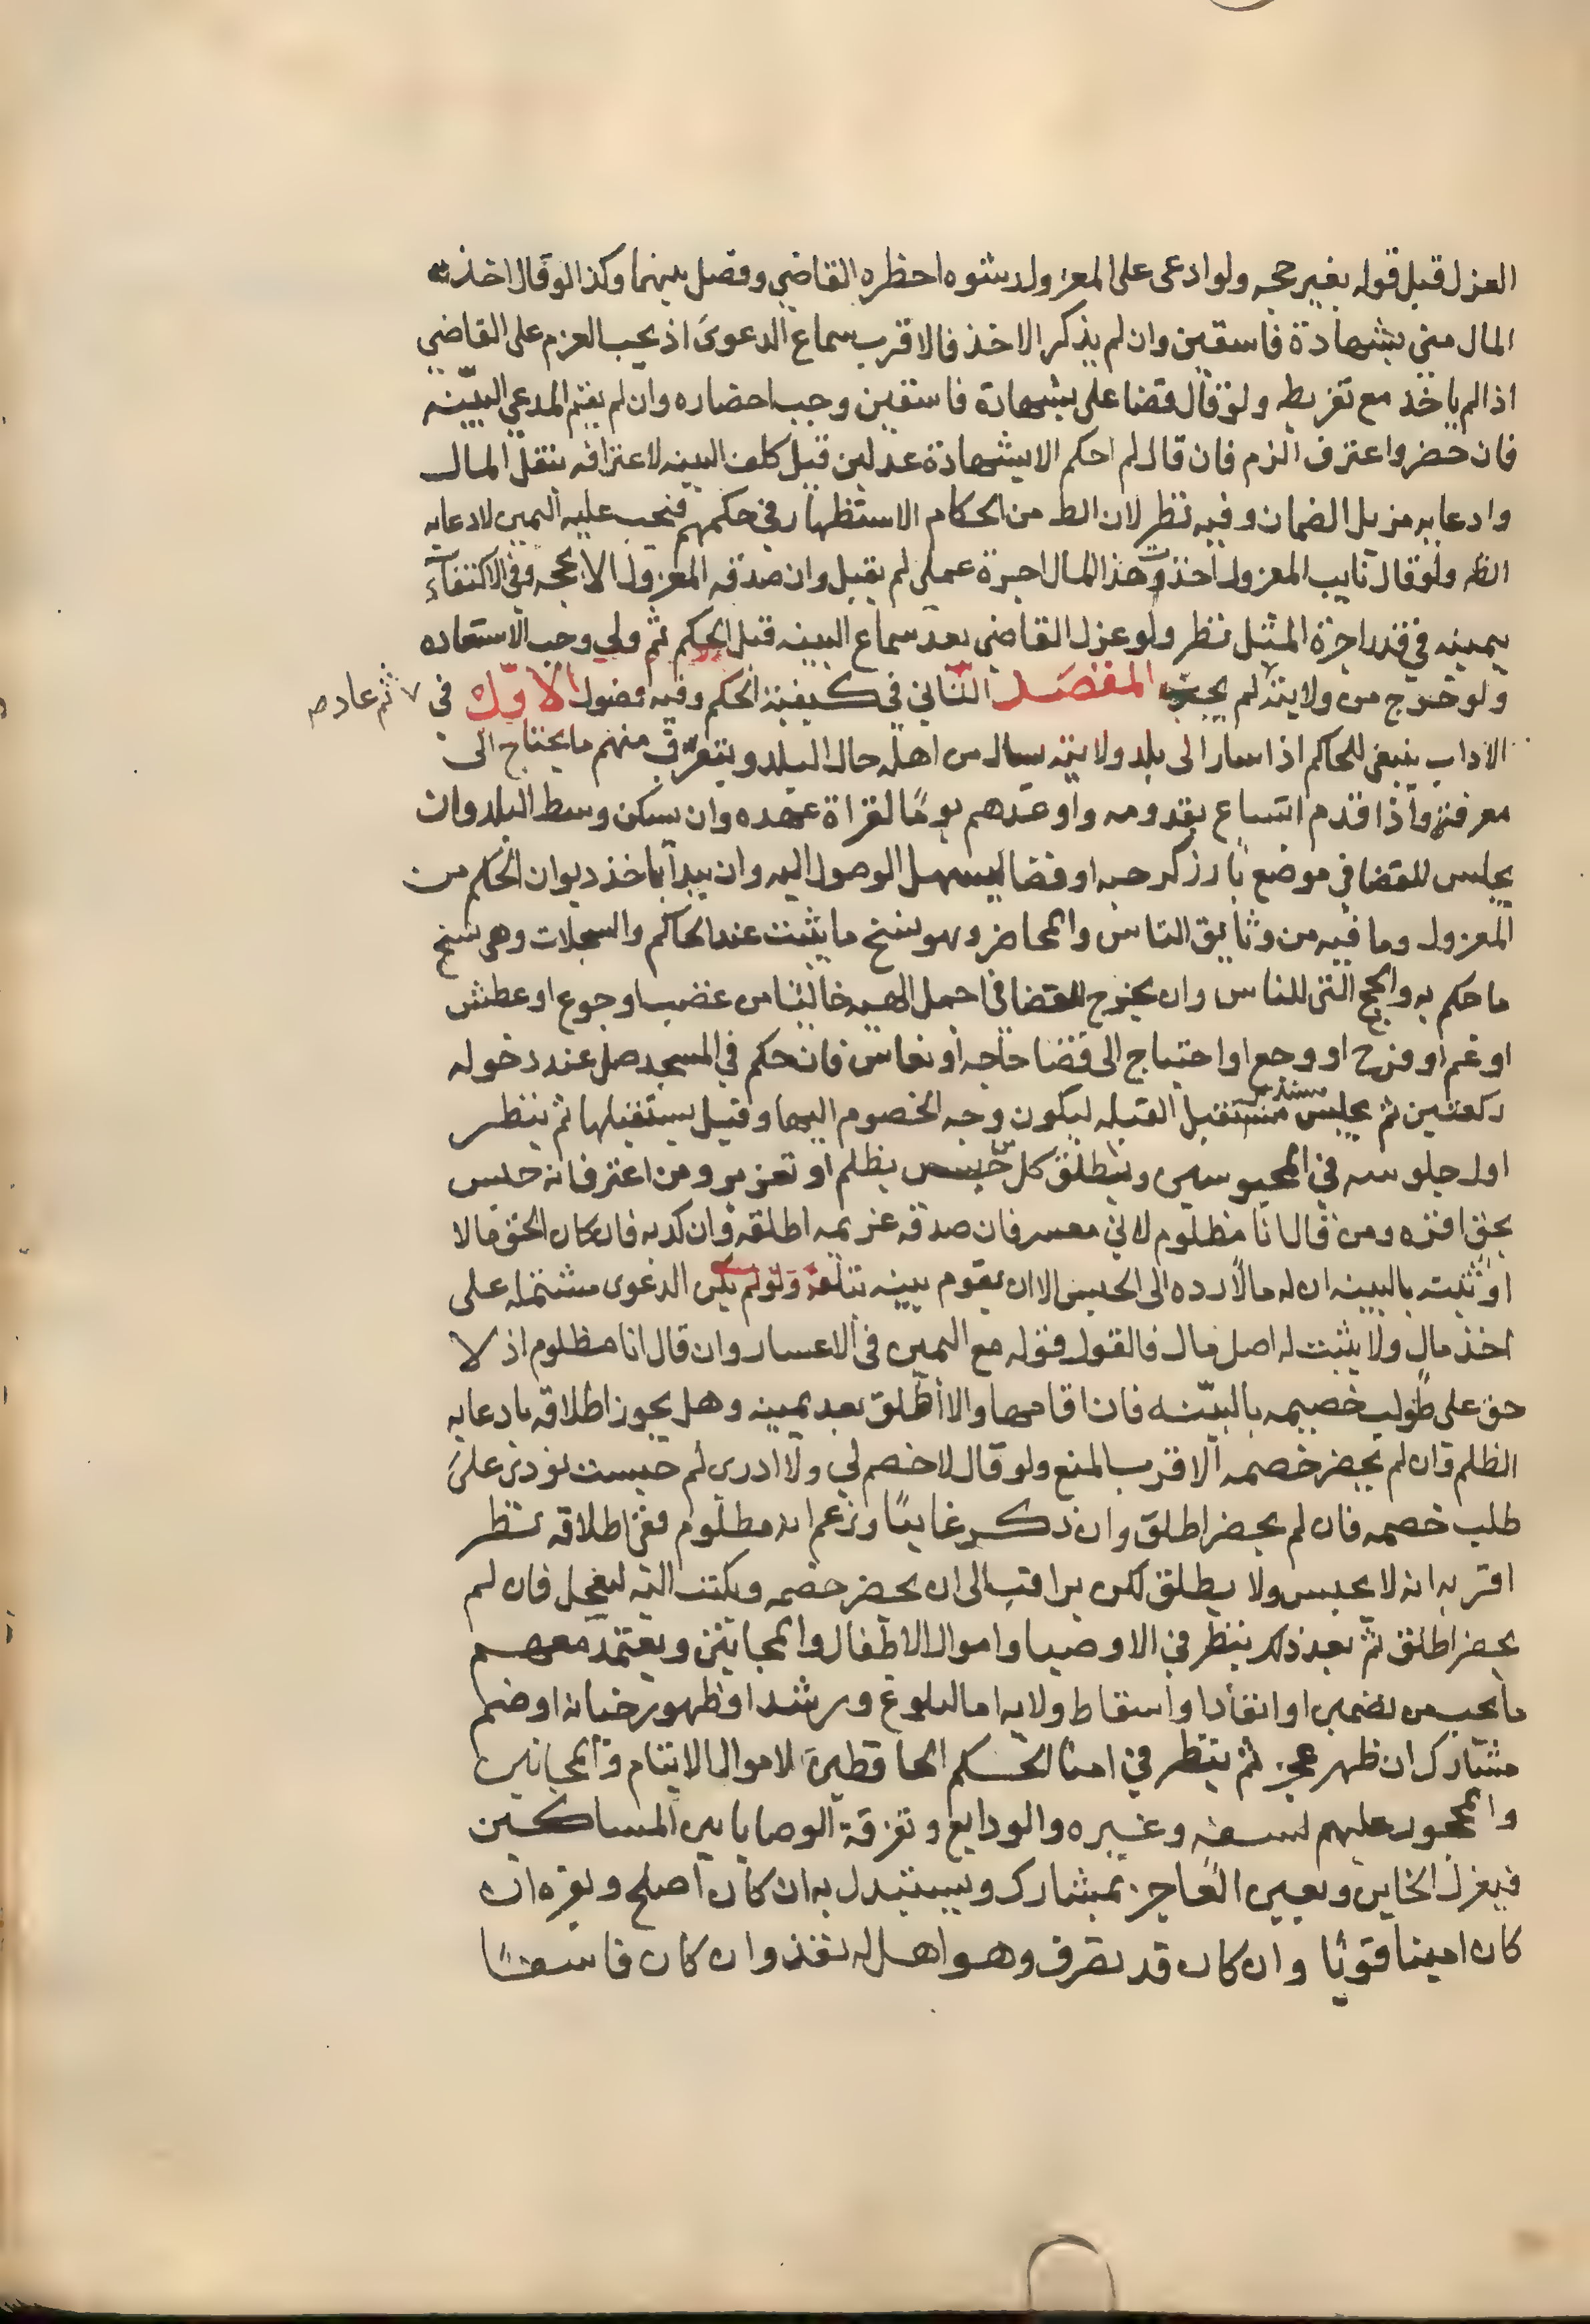 العزل قبل قوله بغير حجه ولو ادعى على المعزول رشوه احظره القاضي وفصل بينهما وكذا لو قال اخذ
المال مني بشهادة فاسقين وان لم يذكر الاخذ فالاقرب سماع الدعوى اذ يجب الغرم على القاضي
اذا لم ياخذ مع تفريطه ولو قال قضا على بشهادة فاسقين وجب احضاره وان لم يقم المدعي البيّنه
فان حضر واعترف الزم فان قال لم احكم الا بشهادة عدلين قيل كلف البينه لاعترافه بنقل المال
وادعايه مزيل الضمان وفيه نظر لان الظ من الحكام الاستظهار في حكمهم فيجب عليه اليمين لادعايه
الظه ولو قال نايب المعزول اخذت هذا المال اجرة عملى لم يقبل وان صدقه المعزول الا بحجه وفي الاكتفآء
بيمينه في قدر اجرة المثل نظر ولو عزل القاضي بعد سماع البينه قبل الحكم ثم ولي وجب الاستعاده
ولو خرج من ولايته لم يجب المقصد الثاني في كيفية الحكم وفيه فصول الاوّل في ٧ ثم عاد ص
الاداب ينبغي للحاكم اذا سار الى بلد ولايته سال من اهله حال البلد ويتعرّف منهم ما يحتاج الى
معرفته واذا قدم اشاع بقدومه واوعدهم يومًا لقراة عهده وان يسكن وسط البلد وان
يجلس للقضا في موضع بارز كرحبه او فضا ليسهل الوصول اليه وان يبدأ باخذ ديوان الحكم من
المعزول وما فيه من وثايق الناس والمحاضر وهو نسخ ما يثبت عند الحاكم والسجلات وهي نسخ
ما حكم به والحجج التي للناس وان يخرج للقضا في اجمل الهيه خاليا من غضب او جوع او عطش
او غم او فرح او وجع او احتياج الى قضا حاجه او نعاس فان حكم في المسجد صلى عند دخوله
ركعتين ثم يجلس مستدبر مستقبل القبله ليكون وجه الخصوم اليها وقيل يستقبلها ثم ينظر
اول جلوسه في المحبوسين ويطلق كل من حبس بظلم او تعزير ومن اعترف انه حبس
بحق اقره ومن قال انا مظلوم لاني معسر فان صدقه غريمه اطلقه وان كذبه فان كان الحق مالا
او ثبت بالبينه ان له مالا رده الى الحبس الا ان يقوم بينه بتلفه ولو لم يكن الدعوى مشتمله على
اخذ مال ولا يثبت له اصل مال فالقول قوله مع اليمين في الاعسار وان قال انا مظلوم اذ لا
حق علي طولب خصيمه بالبيّنه فان اقامها والا أطلق بعد يمينه وهل يجوز اطلاقه بادعايه
الظلم وان لم يحضر خصمه الاقرب المنع ولو قال لا خصم لي ولا ادري لم حبست نودى على
طلب خصمه فان لم يحضر اطلق وان ذكر غايبًا وزعم انه مظلوم ففى اطلاقه نظر
اقربه انه لا يحبس ولا يطلق لكن يراقب الى ان يحضر خصمه ويكتب اليه ليعجل فان لم
يحضر اطلق ثم بعد ذلك ينظر في الاوصيا واموال الاطفال والمجانين ويعتمد معهم
ما يجب من تضمين او انفاذ او اسقاط ولايه اما لبلوغ ورشد او ظهور خيانه او ضم
مشارك ان ظهر عجز ثم ينظر في امنا الحكم الحافظين لاموال الايتام والمجانين
والمحجور عليهم لسفه وغيره والودايع وتفرقة الوصايا بين المساكين
فيعزل الخاين ويعين العاجز بمشارك ويستبدل به ان كان اصلح ويقره ان
كان امينا قويًا وان كان قد تصرف وهو اهل له نفذ وان كان فاسقًا